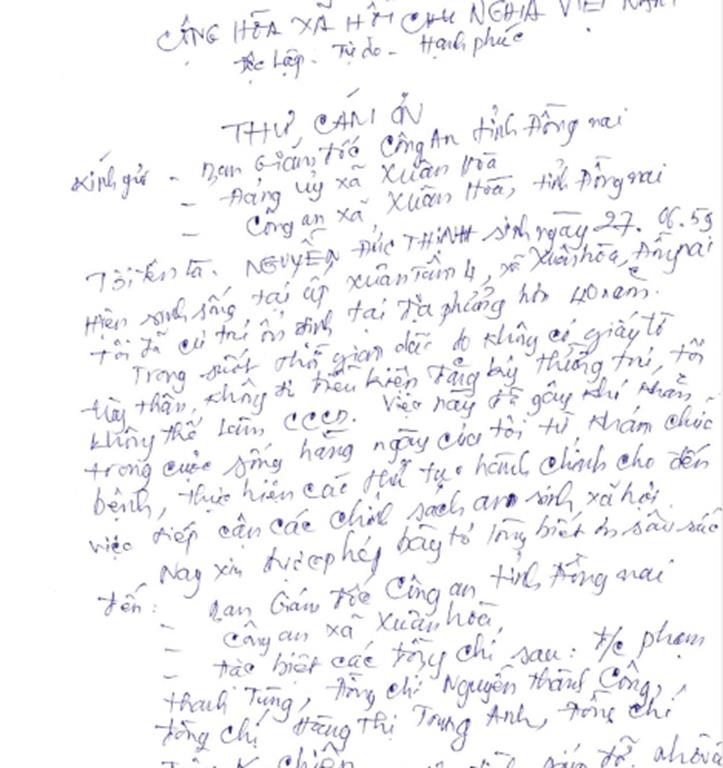 CỘNG HÒA XÃ HỘI CHỦ NGHĨA VIỆT NAM
Độc lập - Tự do - Hạnh phúc
THƯ CÁM ƠN
Kính gửi - Ban Giám đốc Công An tỉnh Đồng nai
- Đảng uỷ xã Xuân Hòa
- Công an xã Xuân Hòa, tỉnh Đồng nai
Tôi tên là. NGUYỄN Đức THỊNH sinh ngày 27. 06.59
Hiện sinh sống tại ấp Xuân Tâm 4, xã Xuân hòa, Đồng nai
Tôi đã cư trú ổn định tại địa phương hơn 40 năm.
Trong suốt thời gian do không có giấy tờ
tùy thân, không đủ điều kiện đăng ký thường trú, tôi
không thể làm CCCD. Việc này đã gây khó khăn
trong cuộc sống hằng ngày của tôi từ khám chữa
bệnh, thực hiện các thủ tục hành chính cho đến
việc tiếp cận các chính sách an sinh xã hội.
Nay xin được phép bày tỏ lòng biết ơn sâu sắc
đến: - Ban Giám đốc Công an tỉnh Đồng nai
- Công an xã Xuân hòa
- Đặc biệt các đồng chí sau: đ/c phạm
thanh Tùng, đồng chí Nguyễn thành Công,
đồng chí Hàng Thị Trung Anh, đồng chí